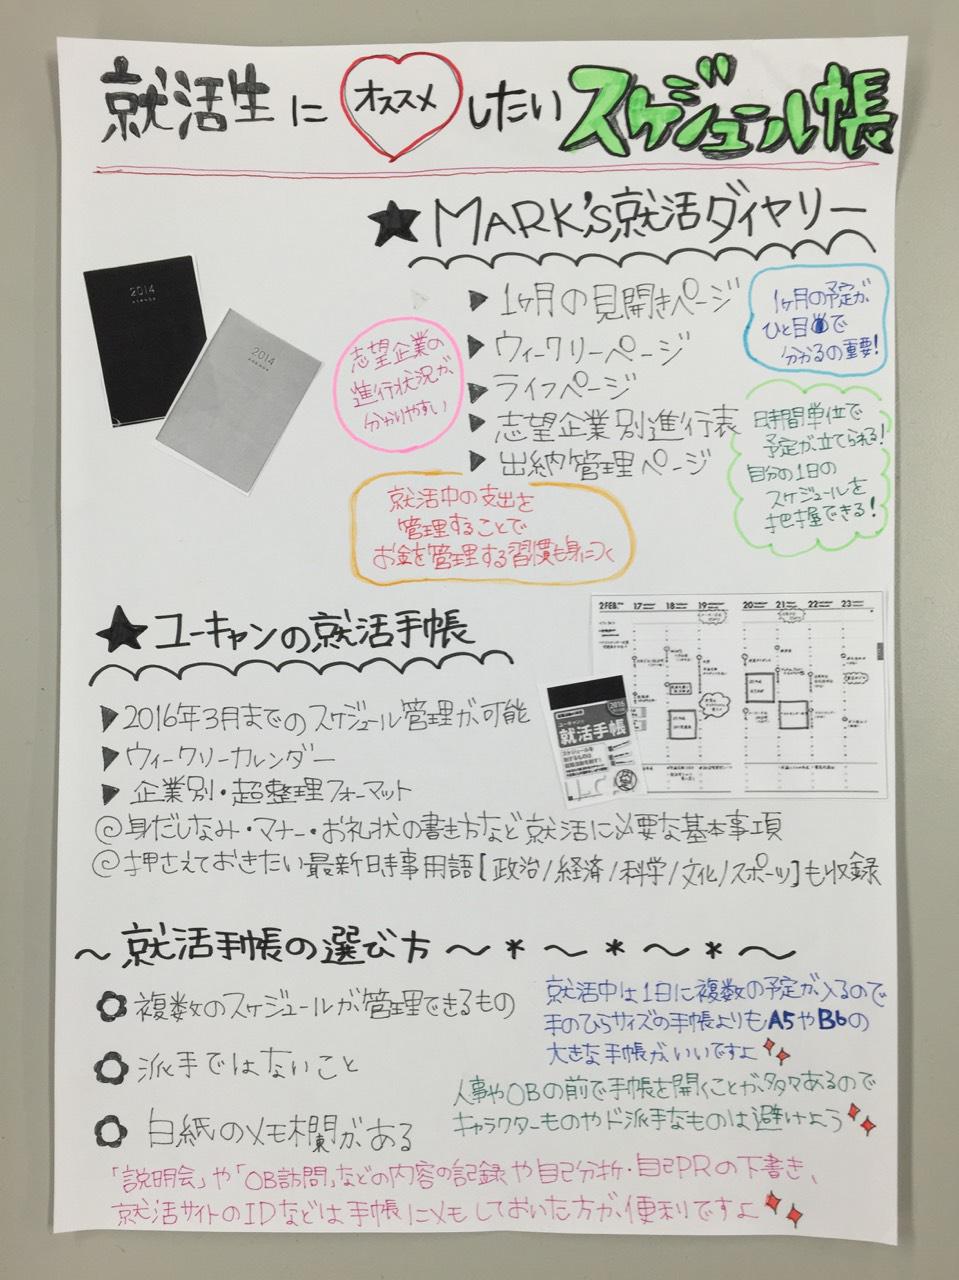 就活生にオススメしたいスケジュール帳
★MARK'S就活ダイヤリー
2014
2014
▶1ヶ月の見開きページ
▶ウィークリーページ
▶ライフページ
▶志望企業別進行表
▶出納管理ページ
1ヶ月の予定が
ひと目で
分かるの重要!
志望企業の
進行状況が
分かりやすい
時間単位で
予定が立てられる!
自分の1日の
スケジュールを
把握できる!
就活中の支出を
管理することで
お金を管理する習慣も身につく
★ユーキャンの就活手帳
2 FEB. 17 18 19 20 21 22 23
2016
ユーキャンの
就活手帳
▶2016年3月までのスケジュール管理が可能
▶ウィークリーカレンダー
▶企業別・超整理フォーマット
◎身だしなみ・マナー・お礼状の書き方など就活に必要な基本事項
◎押さえておきたい最新時事用語[政治/経済/科学/文化/スポーツ]も収録
〜就活手帳の選び方〜*〜*〜*〜
複数のスケジュールが管理できるもの
就活中は1日に複数の予定が入るので
手のひらサイズの手帳よりもA5やB6の
大きな手帳がいいですよ
派手ではないこと
人事やOBの前で手帳を開くことが多々あるので
キャラクターものやド派手なものは避けよう
白紙のメモ欄がある
「説明会」や「OB訪問」などの内容の記録や自己分析・自己PRの下書き、
就活サイトのIDなどは手帳にメモしておいた方が便利ですよ